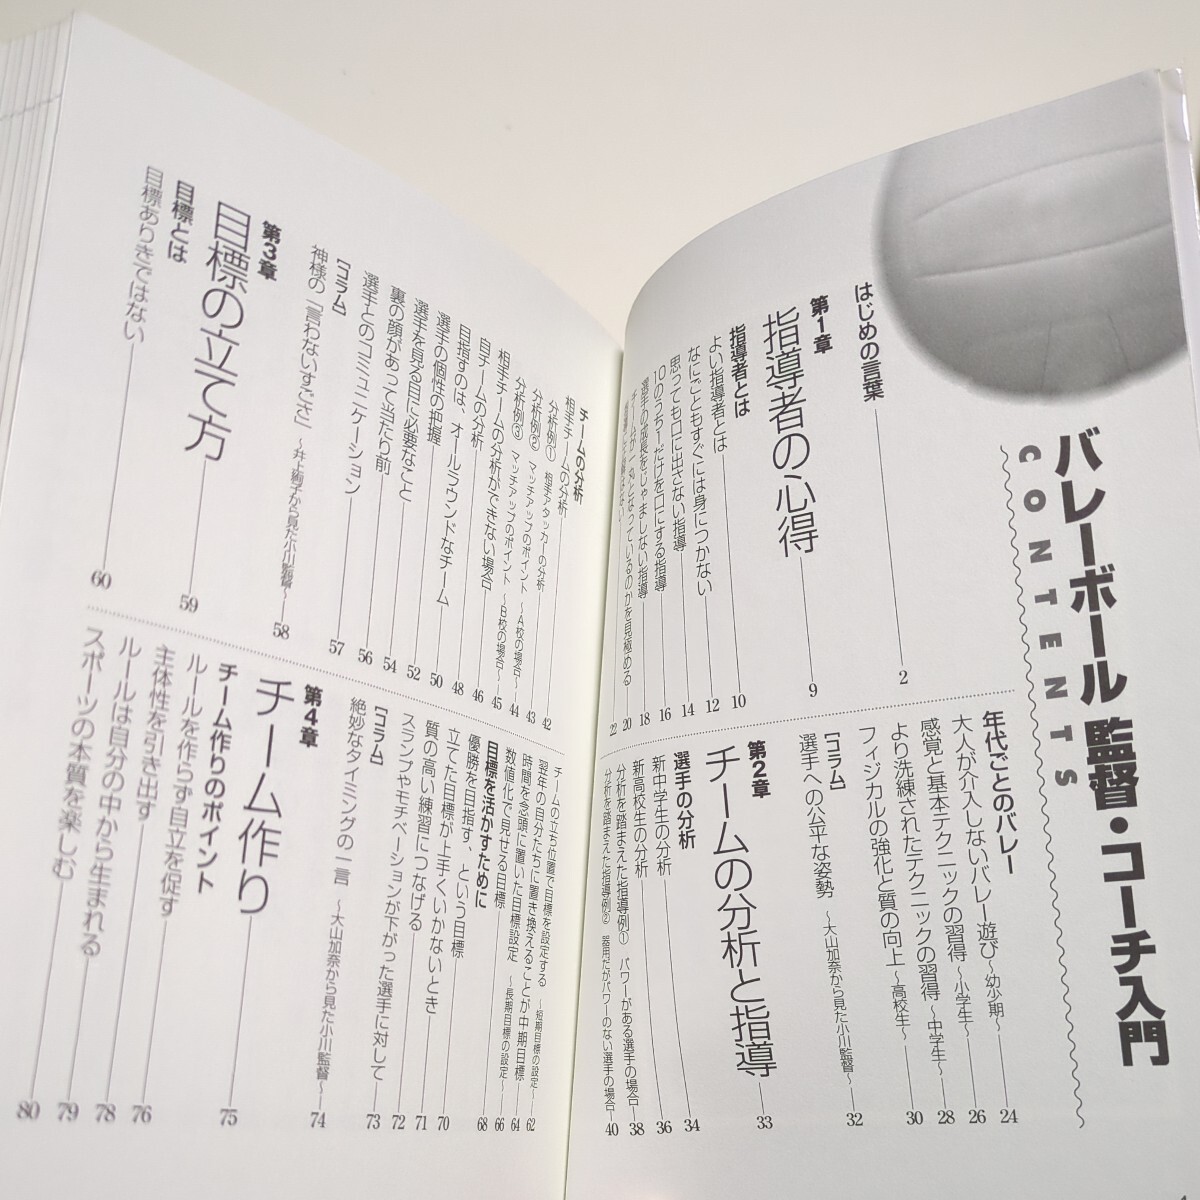 バレーボール 監督・コーチ入門
CONTENTS
はじめの言葉 2
第1章
指導者の心得 9
指導者とは
よい指導者とは 10
なにごともすぐには身につかない 12
思っても口に出さない指導 14
10のうち一だけを口にする指導 16
選手の成長をじゃましない指導 18
チームが一丸となっているのかを見極める 20
22
年代ごとのバレー
大人が介入しないバレー遊び 〜幼少期〜 24
感覚と基本テクニックの習得 〜小学生〜 26
より洗練されたテクニックの習得 〜中学生〜 28
フィジカルの強化と質の向上 〜高校生〜 30
[コラム]
選手への公平な姿勢 〜大山加奈から見た小川監督〜 32
第2章
チームの分析と指導 33
選手の分析
新中学生の分析 34
新高校生の分析 36
分析を踏まえた指導例① パワーがある選手の場合 38
分析を踏まえた指導例② 器用だがパワーのない選手の場合 40
チームの分析
相手チームの分析 42
分析例① 相手アタッカーの分析 43
分析例② マッチアップのポイント 〜A校の場合〜 44
分析例③ マッチアップのポイント 〜B校の場合〜 45
相手チームの分析ができない場合 46
自チームの分析 48
目指すのは、オールラウンドなチーム 50
選手の個性の把握 52
選手を見る目に必要なこと 54
裏の顔があって当たり前 56
選手とのコミュニケーション 57
[コラム]
神様の「言わないすごさ」 〜井上絢子から見た小川監督〜 58
第3章
目標の立て方 59
目標とは
目標ありきではない 60
チームの立ち位置で目標を設定する 〜短期目標の設定〜 62
翌年の自分たちに置き換えることが中期目標 64
時間を念頭に置いた目標設定 〜長期目標の設定〜 66
数値化で見せる目標 68
目標を活かすために
優勝を目指す、という目標 70
立てた目標が上手くいかないとき 71
質の高い練習につなげる 72
スランプやモチベーションが下がった選手に対して 73
[コラム]
絶妙なタイミングの一言 〜大山加奈から見た小川監督〜 74
第4章
チーム作り 75
チーム作りのポイント
ルールを作らず自立を促す 76
主体性を引き出す 78
ルールは自分の中から生まれる 79
スポーツの本質を楽しむ 80